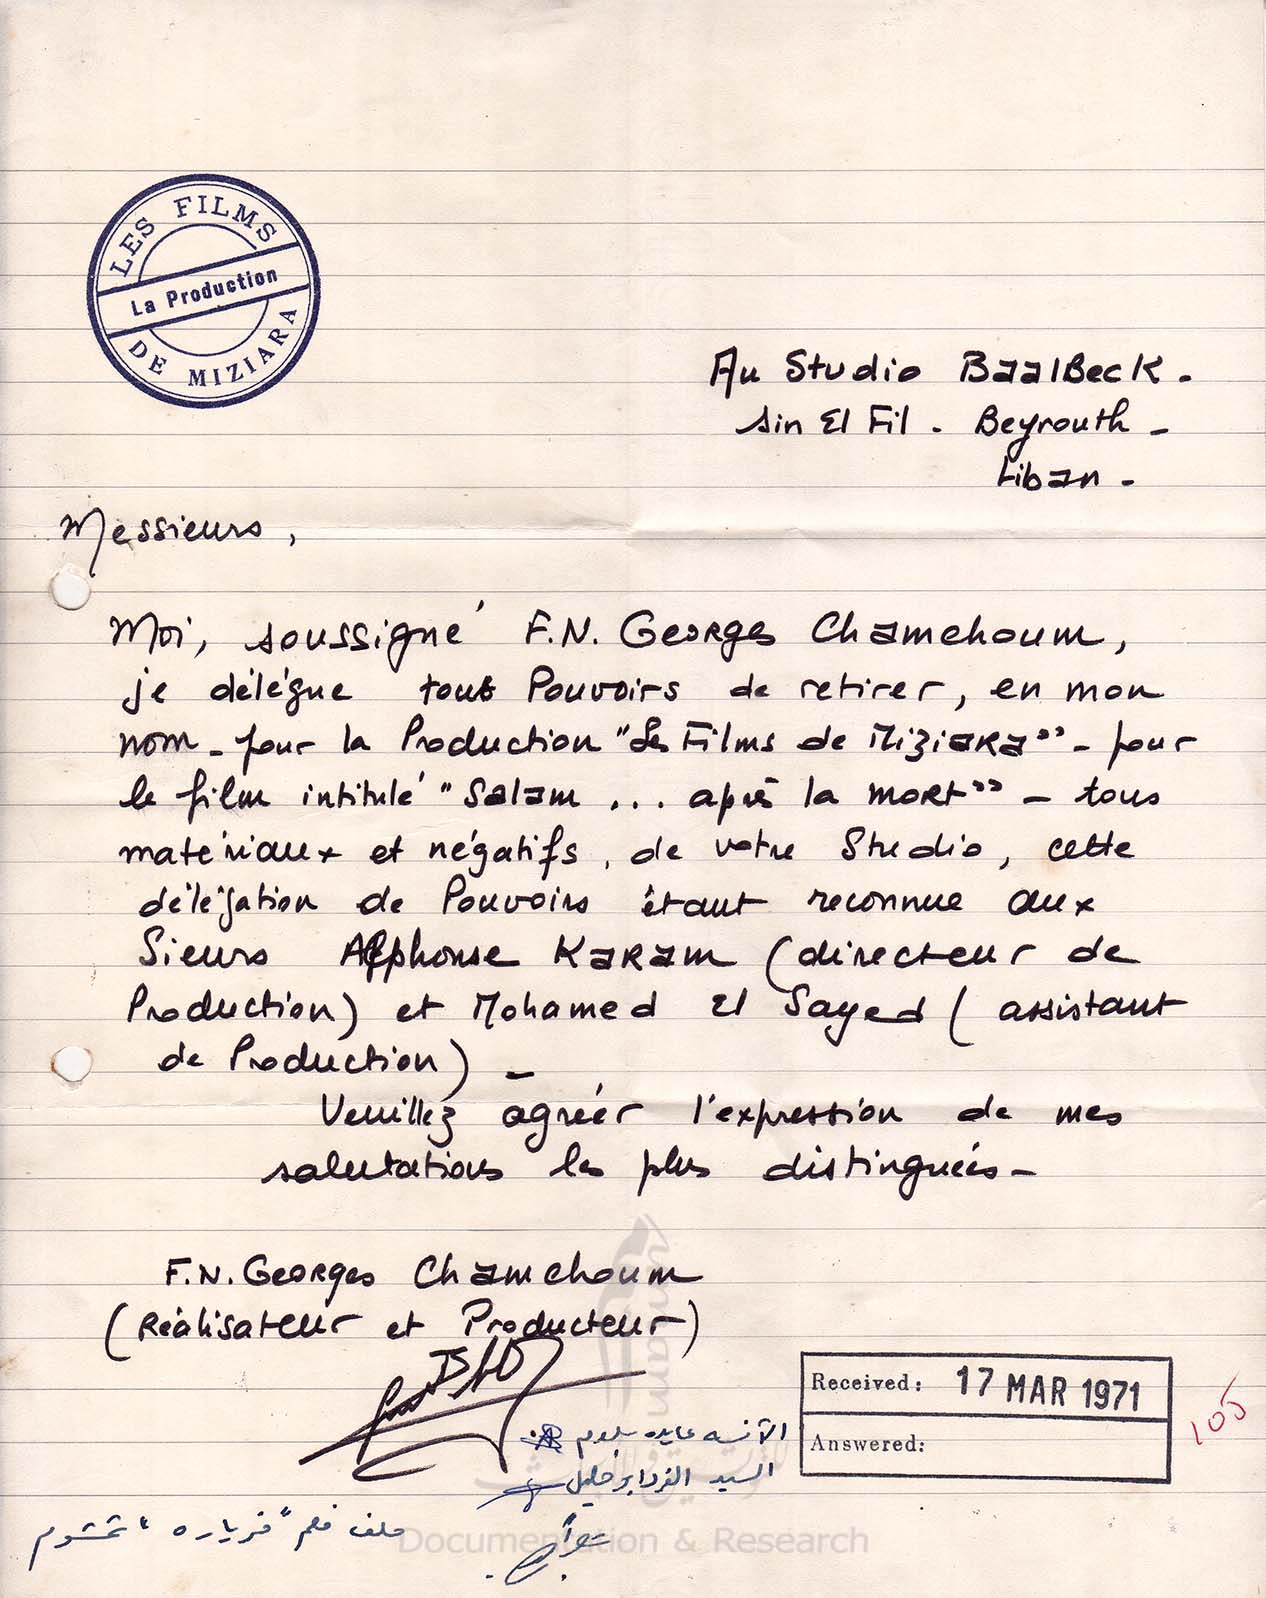 LES FILMS
La Production
DE MIZIARA
Au Studio BaalBeck.
Sin El Fil - Beyrouth -
Liban -
Messieurs,
Moi, soussigné F.N. Georges Chamchoum,
je délégue tous Pouvoirs de retirer, en mon
nom - pour la Production "Les Films de Miziara" - pour
le film intitulé "Salam ... après la mort" - tous
matériaux et négatifs, de votre Studio, cette
délégation de Pouvoirs étant reconnue aux
Sieurs Alphonse Karam (directeur de
Production) et Mohamed El Sayed (assistant
de Production) -
Veuillez agréer l'expression de mes
salutations les plus distinguées -
F.N. Georges Chamchoum
(Réalisateur et Producteur)
Received: 17 MAR 1971
Answered:
105
الآنسه عايده سلوم
السيد الفرد ابو خليل
ملف فلم
Documentation & Research